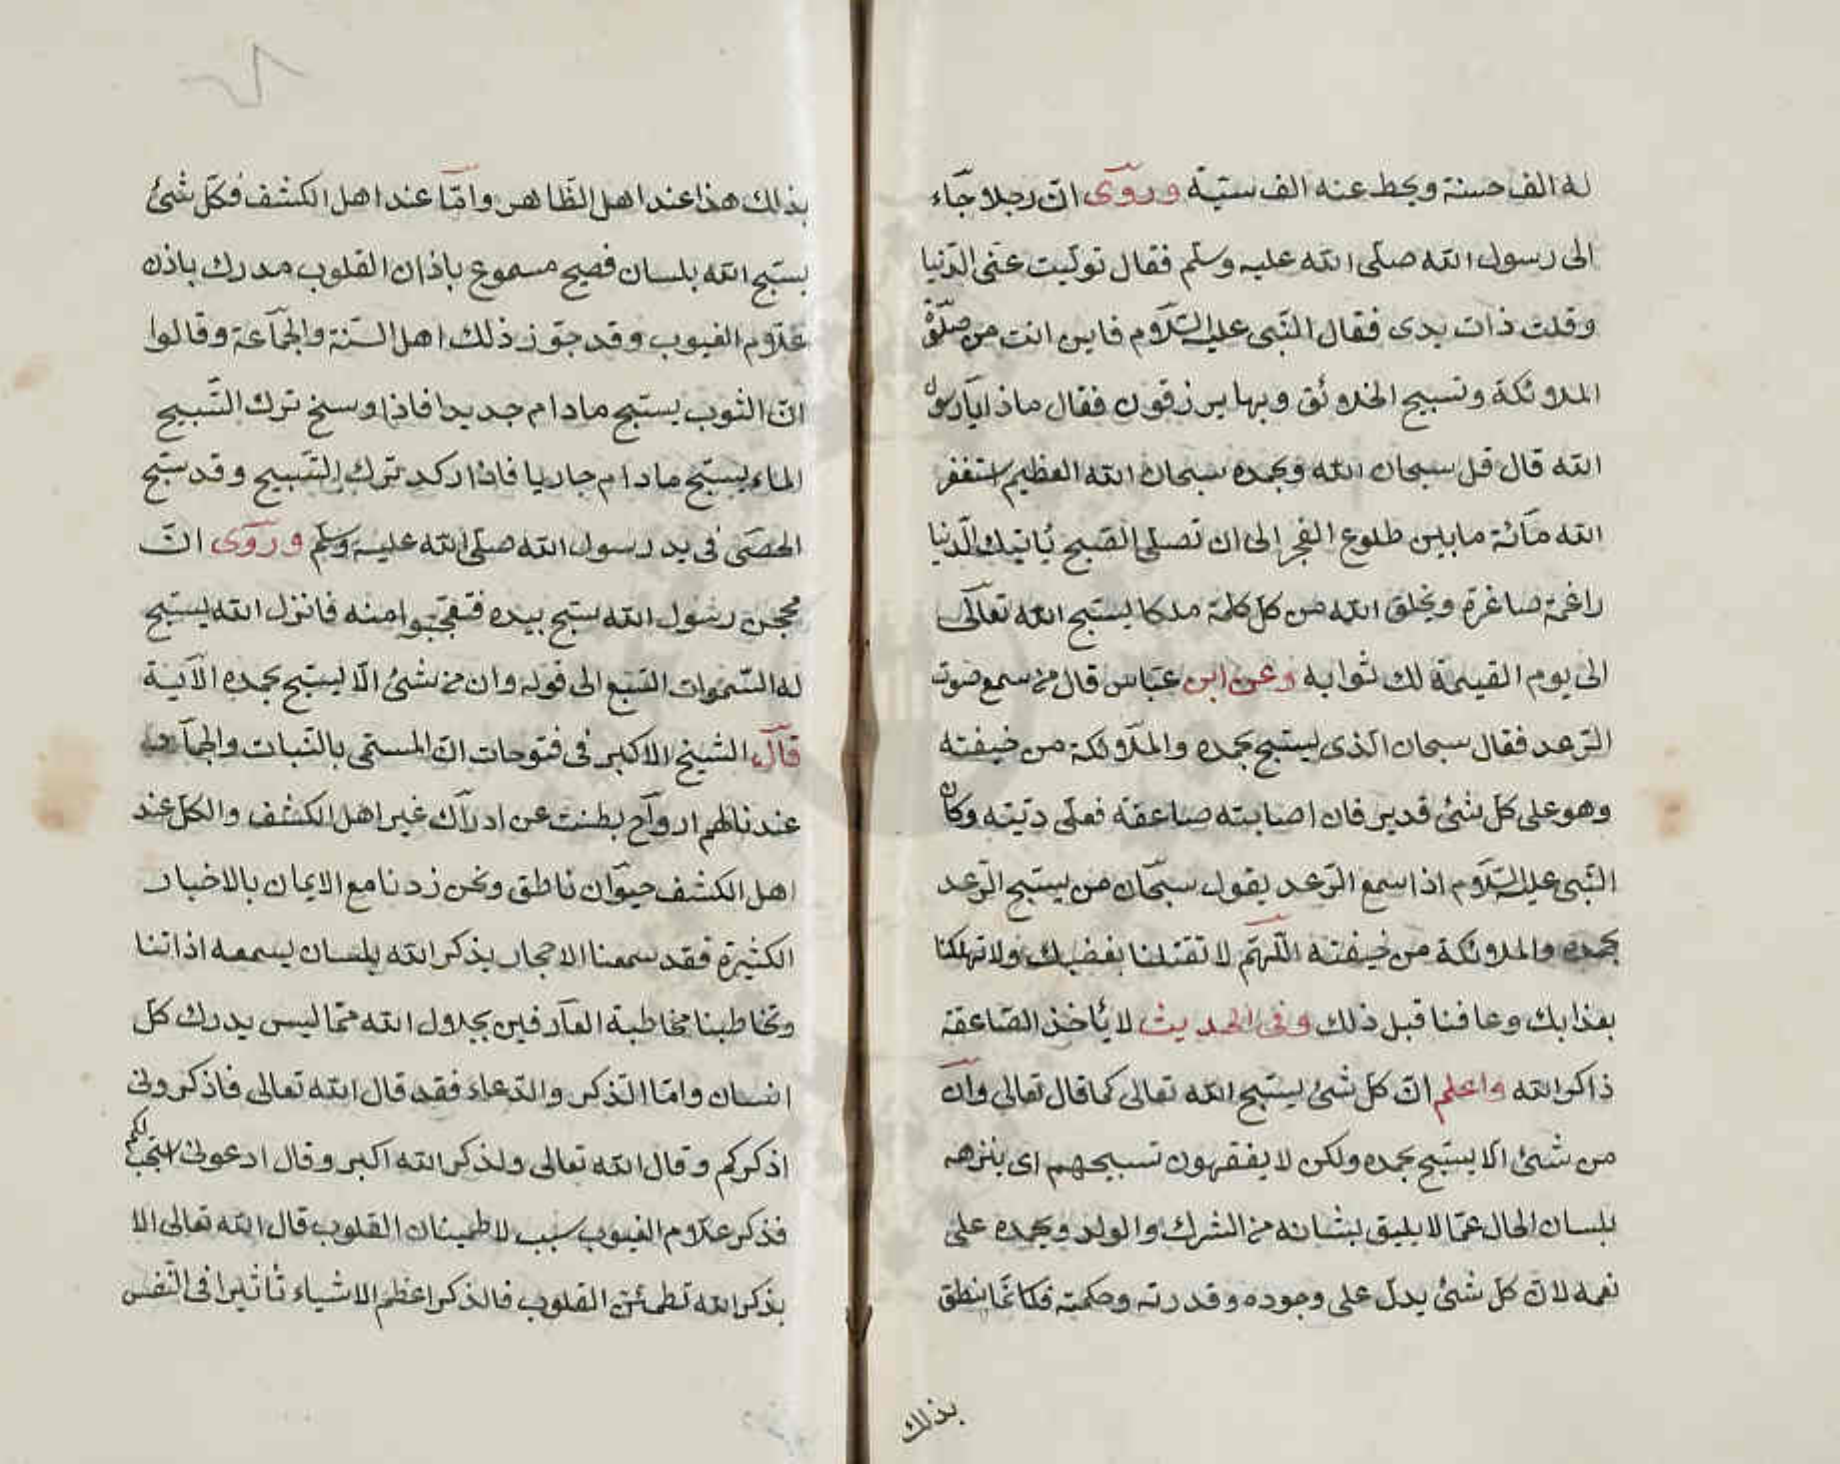 له الف حسنة ويحط عنه الف سيئة وروى ان رجلا جاء
الى رسول الله صلى الله عليه وسلم فقال تولّيت عنّى الدّنيا
وقلت ذات يدى فقال النّبى عليه السّلام فاين انت من صلوة
الملائكة وتسبيح الخلائق وبها يرزقون فقال ماذا يا رسول
الله قال قل سبحان الله وبحمده سبحان الله العظيم استغفر
الله مائة ما بين طلوع الفجر الى ان تصلى الصّبح يأتيك الدّنيا
راغمة صاغرة ويخلق الله من كل كلمة ملكا يسبّح الله تعالى
الى يوم القيمة لك ثوابه وعن ابن عبّاس قال من سمع صوت
الرّعد فقال سبحان الذى يسبّح بحمده والملائكة من خيفته
وهو على كل شئ قدير فان اصابته صاعقة فعلى ديته وكان
النّبى عليه السّلام اذا سمع الرّعد يقول سبحان من يسبّح الرّعد
بحمده والملائكة من خيفته اللّهمّ لا تقتلنا بغضبك ولا تهلكنا
بعذابك وعافنا قبل ذلك وفى الحديث لا يأخذ الصّاعقة
ذاكر الله واعلم انّ كلّ شئ يسبّح الله تعالى كما قال تعالى وان
من شئ الّا يسبّح بحمده ولكن لا يفقهون تسبيحهم اى ينزهه
بلسان الحال عمّا لا يليق بشانه من الشرك والولد وبحمده على
نعمه لانّ كلّ شئ يدلّ على وجوده وقدرته وحكمته فكانّما ينطق
بذلك
بذلك هذا عند اهل الظّاهر وامّا عند اهل الكشف فكلّ شئ
يسبّح الله بلسان فصيح مسموع باذان القلوب مدرك باذن
علّام الغيوب وقد جوّز ذلك اهل السّنة والجماعة وقالوا
انّ الثوب يسبّح مادام جديدا فاذا وسخ ترك التّسبيح
الماء يسبّح مادام جاريا فاذا ركد ترك التّسبيح وقد سبّح
الحصى فى يد رسول الله صلى الله عليه وسلم وروى انّ
محجن رسول الله سبّح بيده فتعجّبوا منه فانزل الله يسبّح
له السّموات السّبع الى قوله وان من شئ الّا يسبّح بحمده الآية
قال الشيخ الاكبر فى فتوحات انّ المسمّى بالنّبات والجماد
عندنا لهم ارواح بطنت عن ادراك غير اهل الكشف والكل عند
اهل الكشف حيوان ناطق ونحن زدنا مع الايمان بالاخبار
الكثيرة فقد سمعنا الاحجار بذكر الله بلسان يسمعه اذاننا
وتخاطبنا مخاطبة العارفين بجلال الله ممّا ليس يدرك كل
انسان وامّا الذّكر والدّعاء فقد قال الله تعالى فاذكرونى
اذكركم وقال الله تعالى ولذكر الله اكبر وقال ادعونى استجب لكم
فذكر علّام الغيوب سبب لاطمينان القلوب قال الله تعالى الا
بذكر الله تطمئنّ القلوب فالذكر اعظم الاشياء تأثيرا فى النّفس